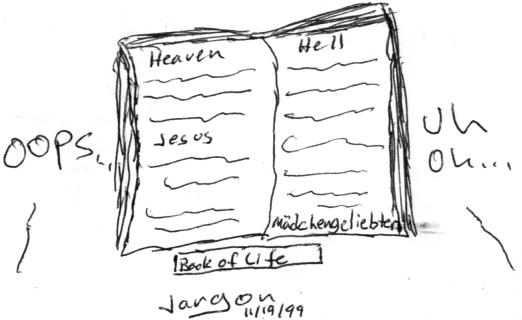 Heaven
Hell
Jesus
OOPS...
Uh
Oh...
Mädchengeliebter
Book of Life
Jargon
11/19/99